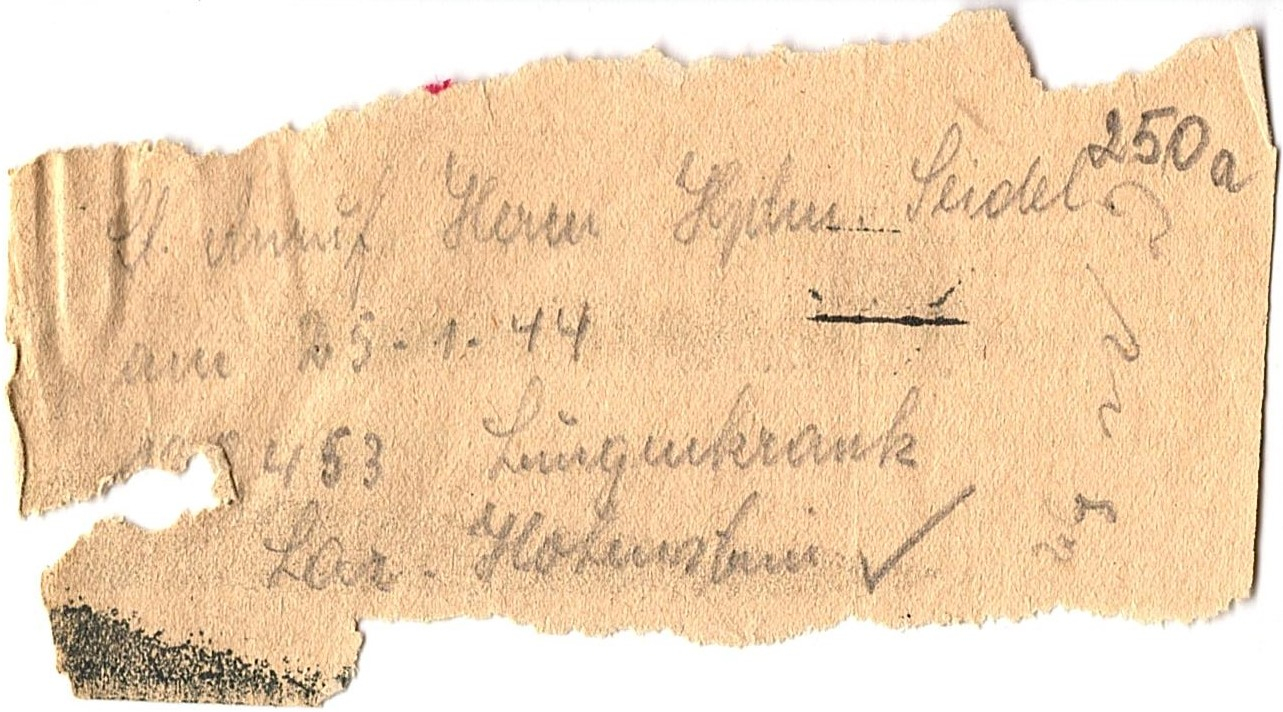 250a
lt. Anruf Herrn Hptm. Seidel
am 25.1.44
453 Lungenkrank
Laz. Hohenstein